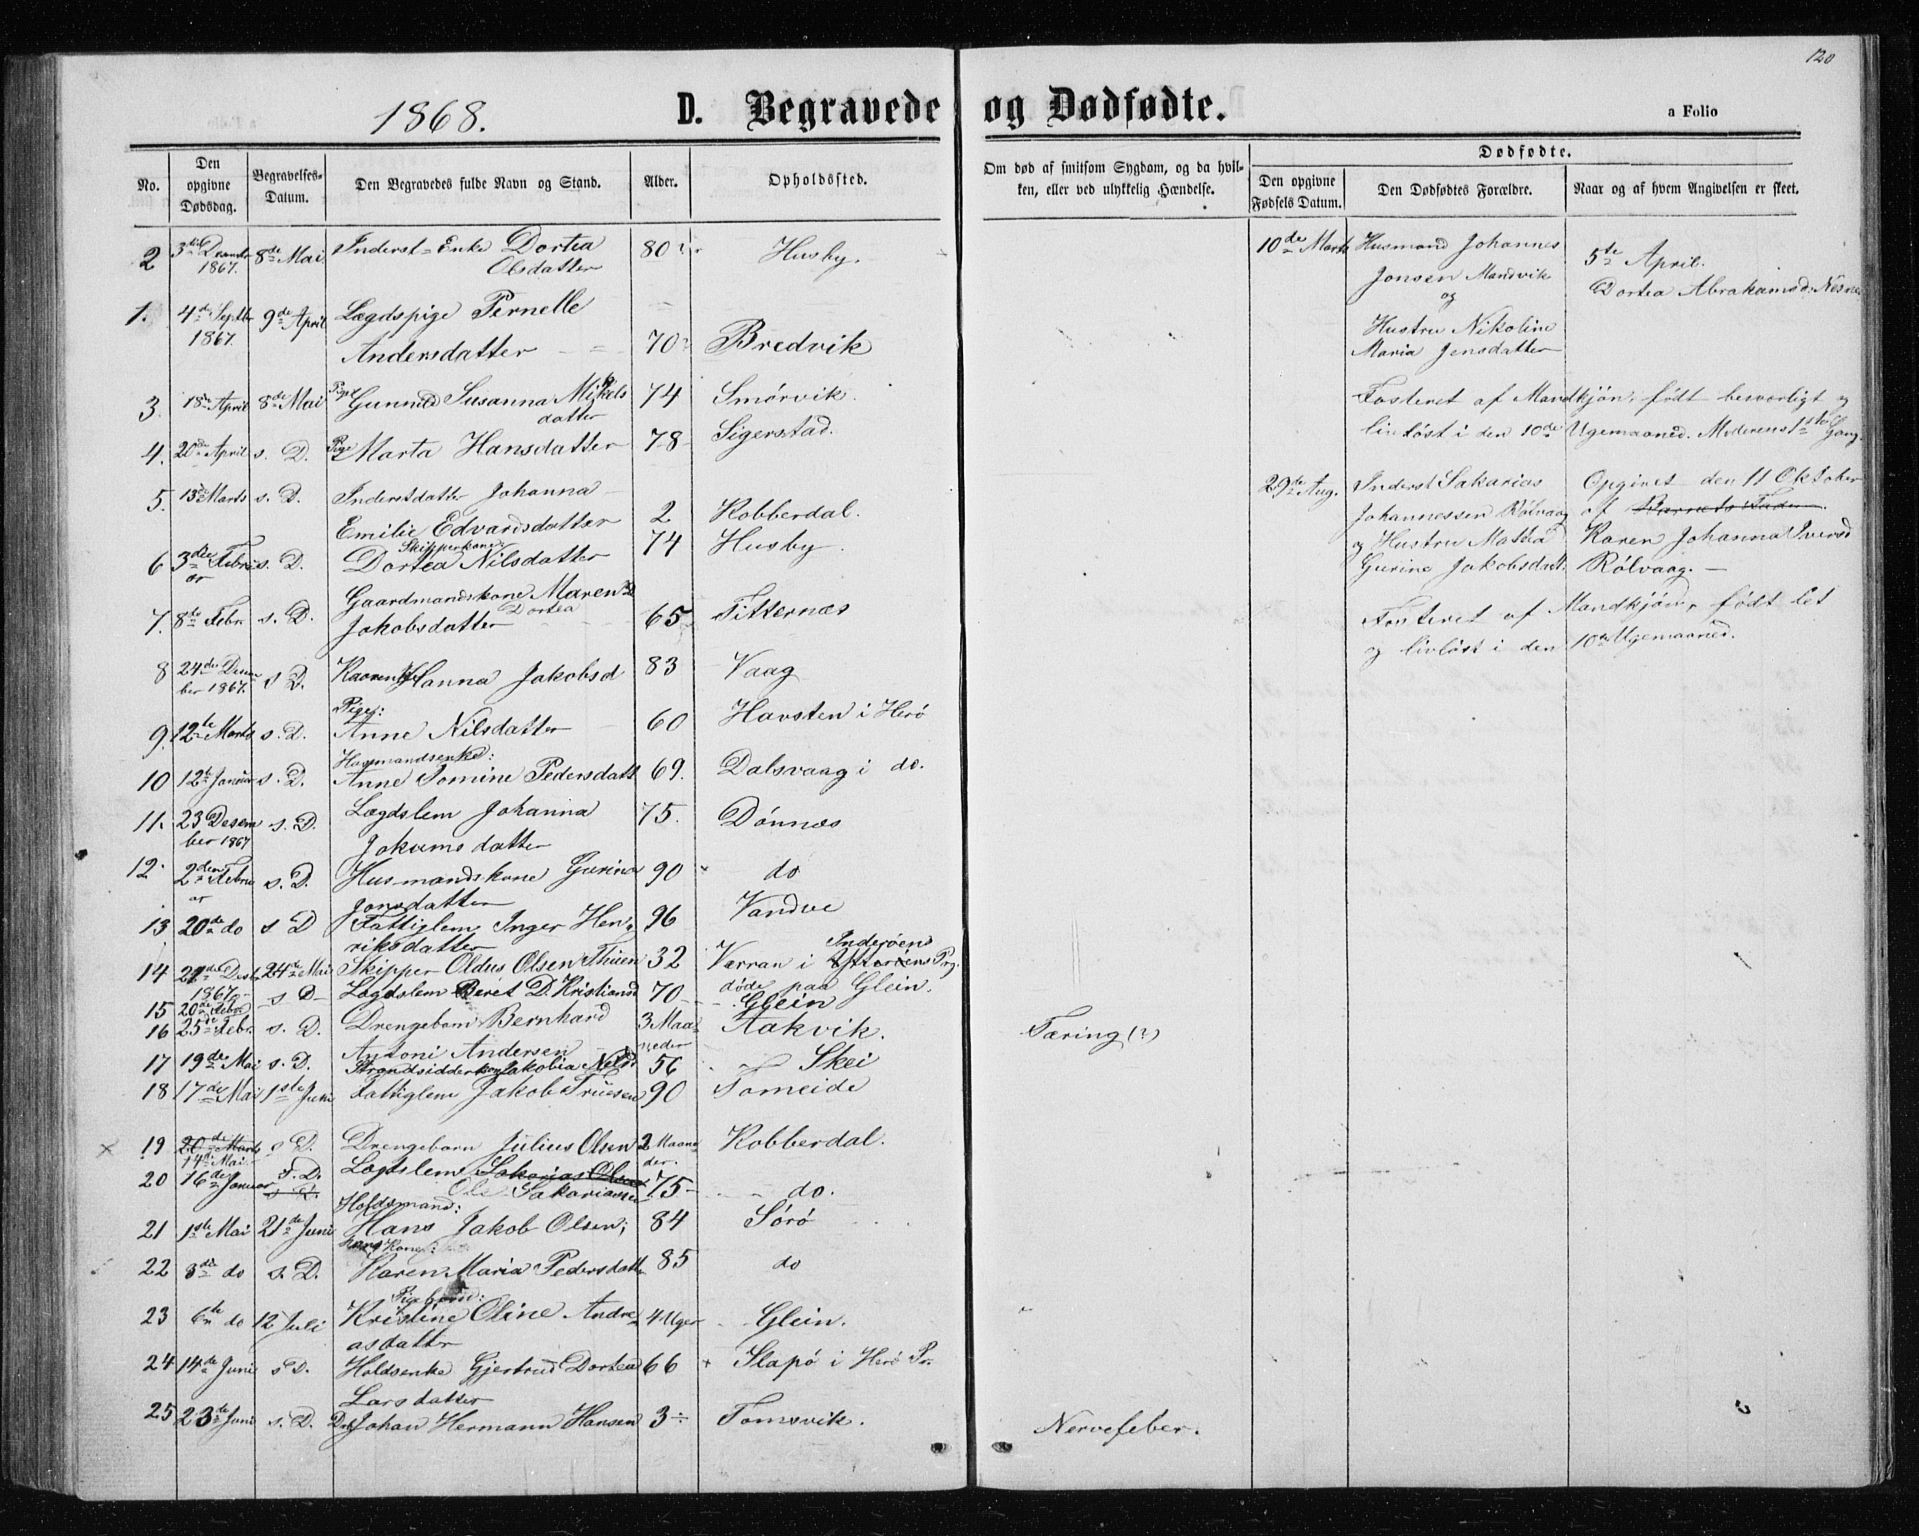 120
1868.
D. Begravede og Dødfødte.
a Folio
No.
Den opgivne Dødsdag.
Begravelses-Datum.
Den Begravedes fulde Navn og Stand.
Alder.
Opholdssted.
Om død af smitsom Sygdom, og da hvil-
ken, eller ved ulykkelig Hændelse.
Dødfødte.
Den opgivne Fødsels Datum.
Den Dødfødtes Forældre.
Naar og af hvem Angivelsen er skeet.
2 3die Desember 1867. 8de Mai Inderst-Enke Dortea Olsdatter 80 Husby.
1. 4de Septbr 1867. 9de April Lægdspige Pernelle
Andersdatter 70 Bredvik
3. 18de April 8de Mai Pige Gunnild Susanna Mikkels
datter 74 Smørvik.
4. 20de April s. D. Pige Marta Hansdatter 78 Sigerstad.
5. 13de Marts s. D. Inderstdatter Johanna
Emilie Edvardsdatter 2 Kobberdal.
6 3die Februar s. D. Skipperkone Dortea Nilsdatter 74 Husby.
7. 8de Febr. s. D. Gaardmandskone Maren Dortea
Jakobsdatter 65 Titternæs
8 24de Desember 1867. s D. Hanna Jakobsd 83 Vaag
9. 12te Marts s. D. Pige: Anne Nilsdatter 60 Havsten i Herö
10 12te Januar s. D. Husmandsenke: Anne Tomine Pedersdatt 69. Dalsvaag i do.
11. 23 Desember 1867 s. D. Lægdslem Johanna
Jokumsdatter 75. Dönnæs
12. 2den Februar s. D. Husmandskone Gurina
Jonsdatter 90 do
13 20de do s D Fattiglem Inger Hen-
riksdatter 96 Vandve
14 21de Desbr 1867 24de Mai Skipper Oldus Olsen Thuen 32 Værran i Inderöens Prg.
døde paa Glein.
15 20de Febr s D Lægdslem Beret D. Kristiansd 70 Glein
16 25de Febr. s. D. Drengebarn Bernhard
Antoni Andersen 3 Maaneder Aakvik. Tæring (?)
17 19de Mai s. D. Strandsidderkone Jakobia Nilsd 56 Skei
18 17de Mai 1ste Juni Fattiglem Jakob Truesen 90 Tomeide
19 20de Marts 14de Mai s D. Drengebarn Julius Olsen 2 Maaneder. Kobberdal.
20 16de Januar F. D. s D. Lægdslem Sakarias Olsen
Ole Sakariassen 75 do.
21 1ste Mai 21de Juni Holdsmand: Hans Jakob Olsen; 84 Sörö
22 3die do s. D. hans Kone: Karen Maria Pedersdatter 85 do
23 6te do 12 Juli Pigebarn: Kristine Oline Andre-
asdatter 4 Uger Glein.
24 14de Juni s D. Holdsenke Gjertrud Dortea
Larsdatter 66 Slapö i Herö Pr.
25 23de Juni s. D. Johan Hermann Hansen 3 Tomsvik. Nervefeber.
10de Marts
Husmand Johannes
Jonsen Mandvik
og
Hustru Nikoline
Maria Jensdatter
5te April.
Dortea Abrahamsd. Nesna
Fosteret af Mandkjön, født besværligt og
livlöst i den 10de Ugemaaned. Moderens 1ste Gang.
29de Aug.
Inderst Sakarias
Johannessen Rölvaag
og Hustru Mattea
Gurine Jakobsdatt.
Opgivet den 11 Oktober
af Barnets Fader.
Karen Johanna Iversd
Rölvaag. —
Fosteret af Mandkjön, født let
og livlöst i den 10de Ugemaaned.